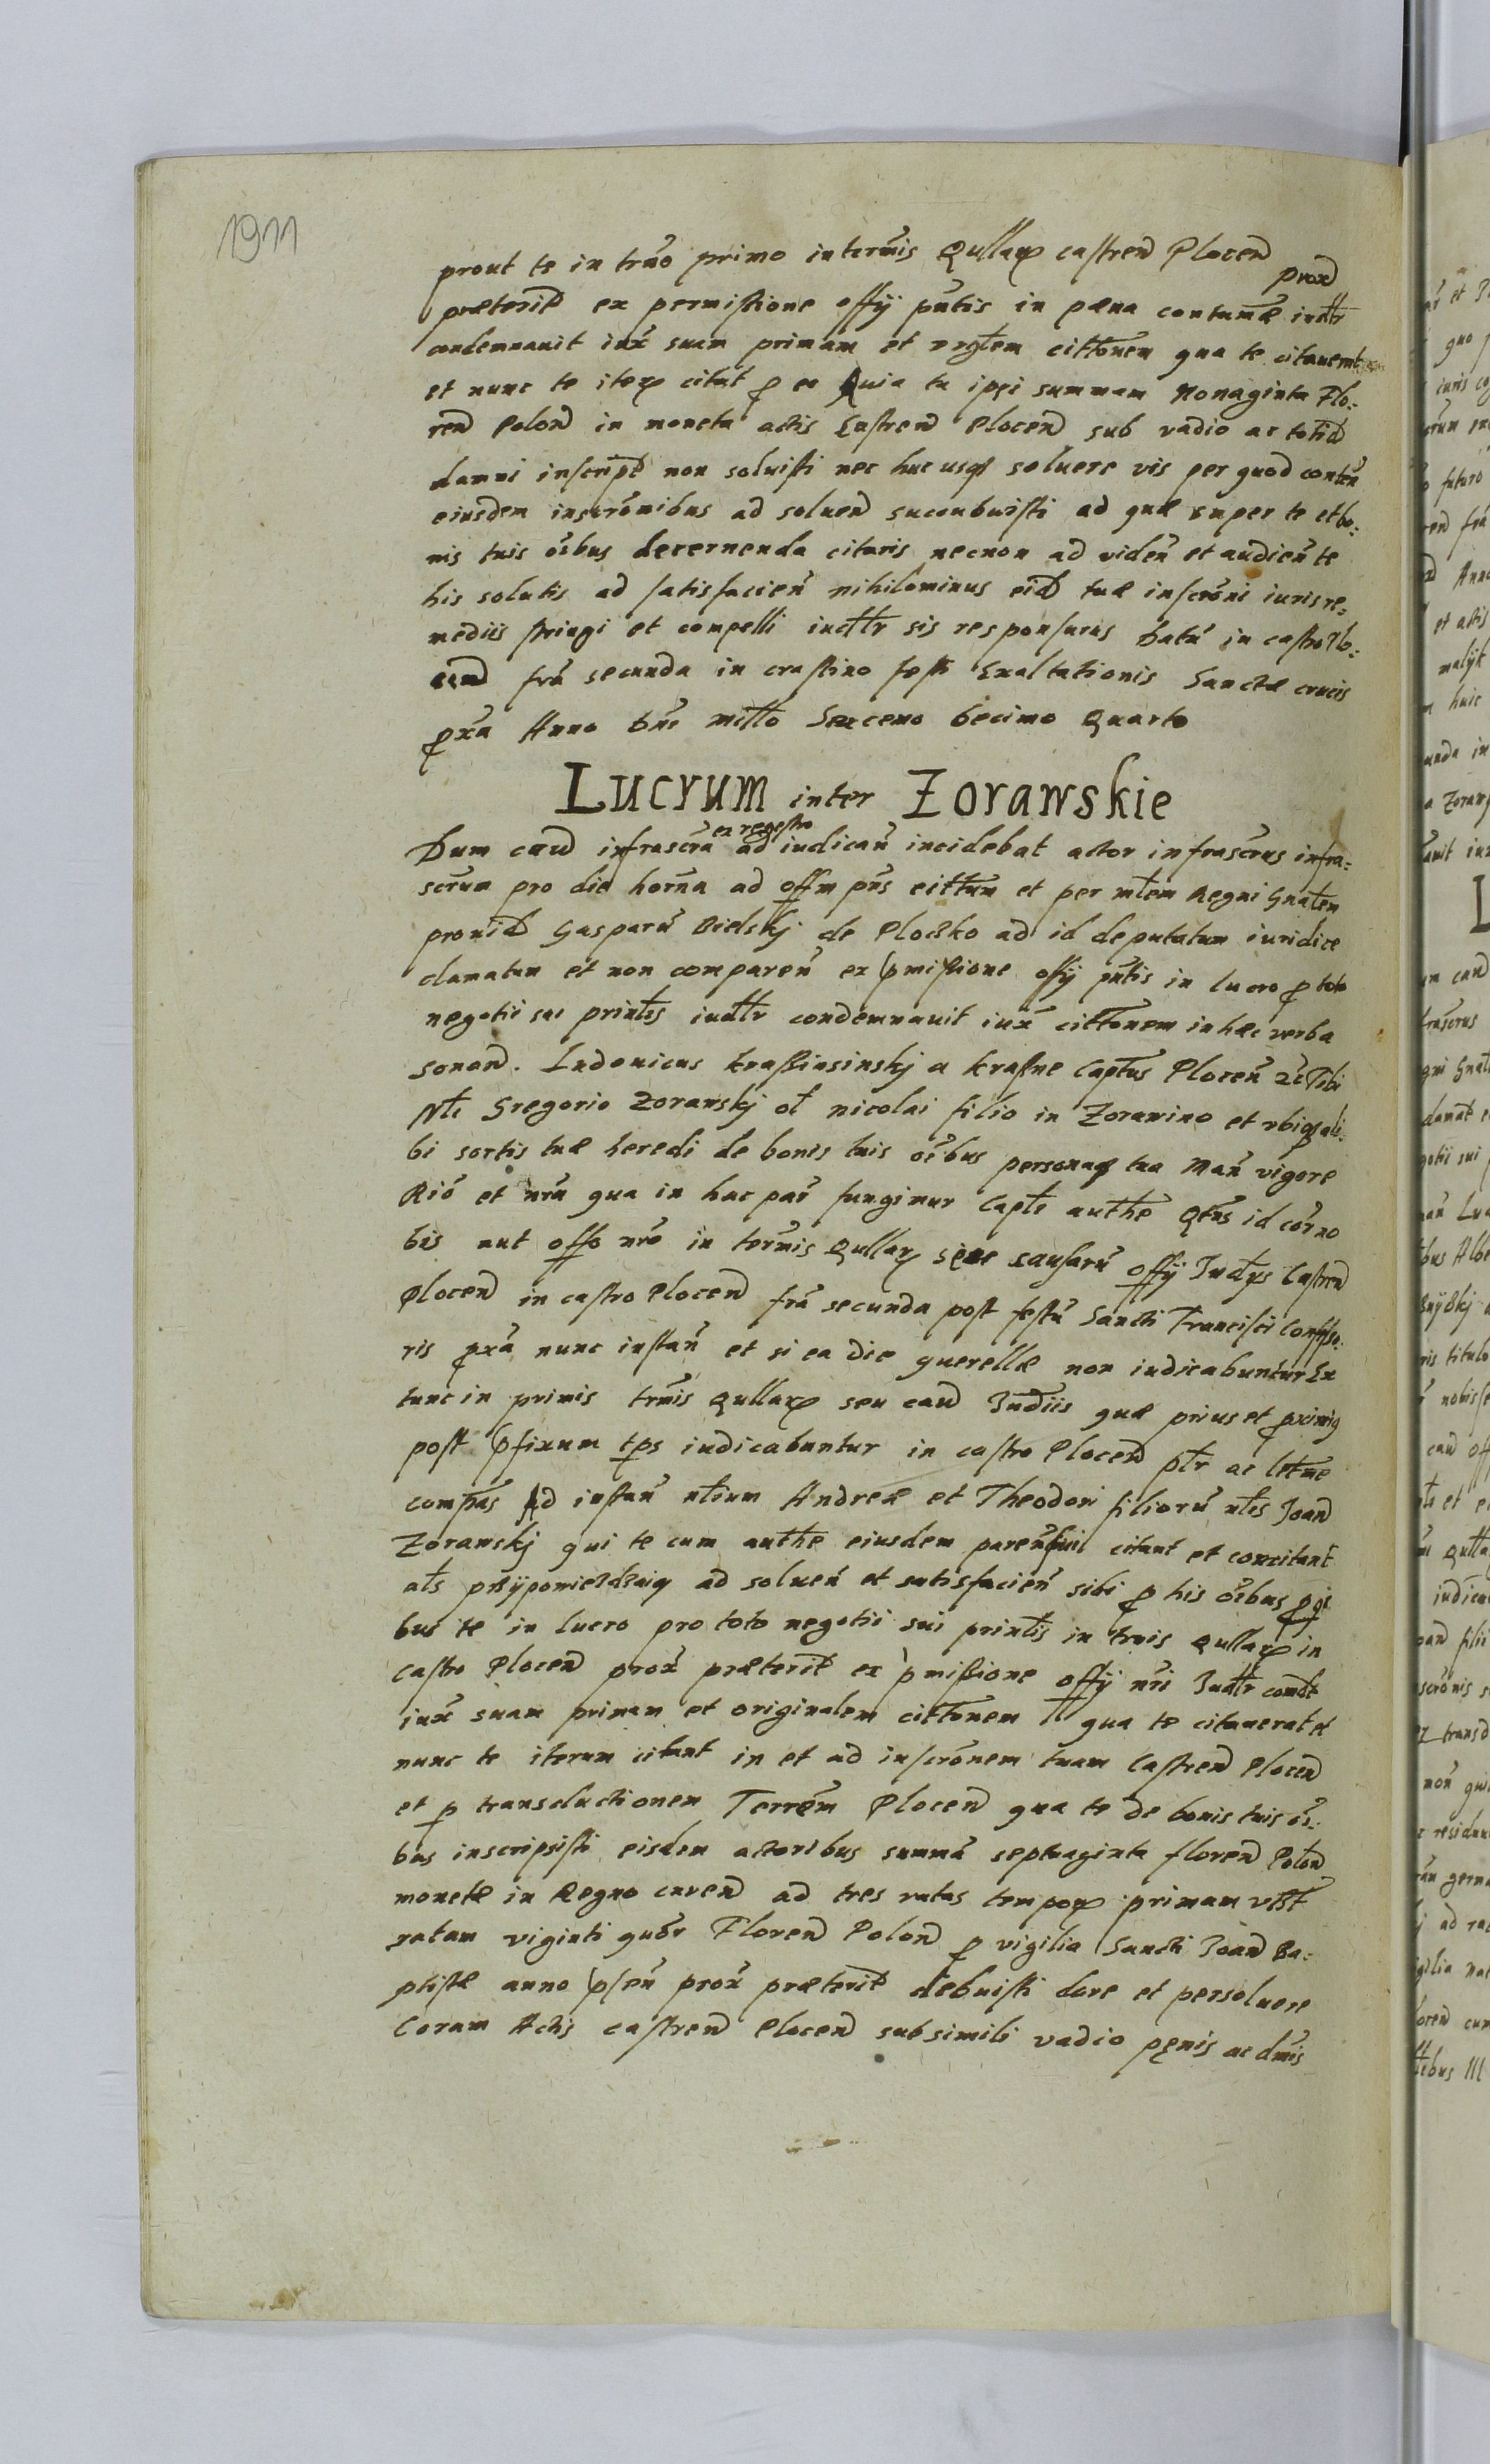 1911
prout te in trño primo in terminis Qullarꝝ castren Plocen
prox
præterit ex permissione offÿ pntis in pæna contumæ iudtr
condemnauit iux suam primam et orgtem cittonem qua te citauerat
et nunc te iterꝝ citat ꝑ eo Quia tu ipsi summam Nonaginta Flo:
ren Polon in moneta actis Castren Plocen sub vadio ac totid
damni inscript non soluisti nec huc usqꝫ soluere vis per quod conten
eiusdem inscrõnibus ad soluen sucoubuisti ad quæ super te et bo:
nis tuis oibus decernenda citaris necnon ad viden et audien te
his solutis ad satisfacien nihilominus eid tuæ inscrõni iuris re:
mediis stringi et compelli iudtr sis responsurus Datũ in castro Plo:
cen fria secunda in crastino festi Exaltationis Sanctæ crucis
ꝓxa Anno Dni mitto Sexceno Decimo Quarto
Lucrum inter Zorawskie
ex regestro
Dum cau infrascra ad iudican incidebat actor infrascrus infra:
scrum pro die horna ad offm pns cittum et per mtem Regni Gnatem
prouid Gasparũ Bielskj de Ploczko ad id deputatum iuridice
clamatum et non comparen ex pmissione offÿ pntis in lucro ꝓ toto
negotii sui printis iudtr condemnauit iux cittonem in hæc verba
sonan. Ludouicus Krassinsinskj a Krasne Captus Plocen &c Tibi
Nti Gregorio Zorawskj ot nicolai filio in Zorawino et vbiqꝫ ali:
bi sortis tuæ heredi de bonis tuis oibus personaqꝫ tua Man vigore
Rió et nra qua in hac par fungimur Capte authe Qtus id cor no
bis aut offo nro in terminis Qullarꝝ siue causarũ offÿ Judtys Castren
Plocen in castro Plocen fria secunda post festũ Sancti Francisci Confesso:
ris ꝓxa nunc instan et si ea die querellæ non iudicabuntur Ex
tunc in primis trmis Qullarꝝ seu cau Judiis quæ prius et ꝓximiꝗ
post pfixum tps iudicabuntur in castro Plocen ptr ac letme
compas Ad instan ntium Andreæ et Theodori filiorũ ntis Joan
Zorawskj qui te cum authe eiusdem paren sui citant et concitant
ats przÿpowiedzaiꝗ ad soluen et satisfacien sibi ꝓ his oibus ꝓ qi
bus te in lucro pro toto negotii sui printis in trmis Qullarꝝ in
castro Plocen prox præterit ex pmissione offÿ nri Judtr condt
iux suam primam et originalem cittonem qua te citauerat et
nunc te iterum citant in et ad inscrõnem tuam Castren Plocen
et p transductionem Terrem Plocen qua te de bonis tuis oi:
bus inscripsisti eisdem actoribus summã septuaginta floren Polon
monetæ in Regno curen ad tres ratas temporꝝ primam vtst
ratam viginti quor Floren Polon ꝓ vigilia Sancti Joan Ba:
ptistæ anno psen prox præterit debuisti dare et persoluere
Coram Actis castren Plocen sub simili vadio pęnis ac dmis